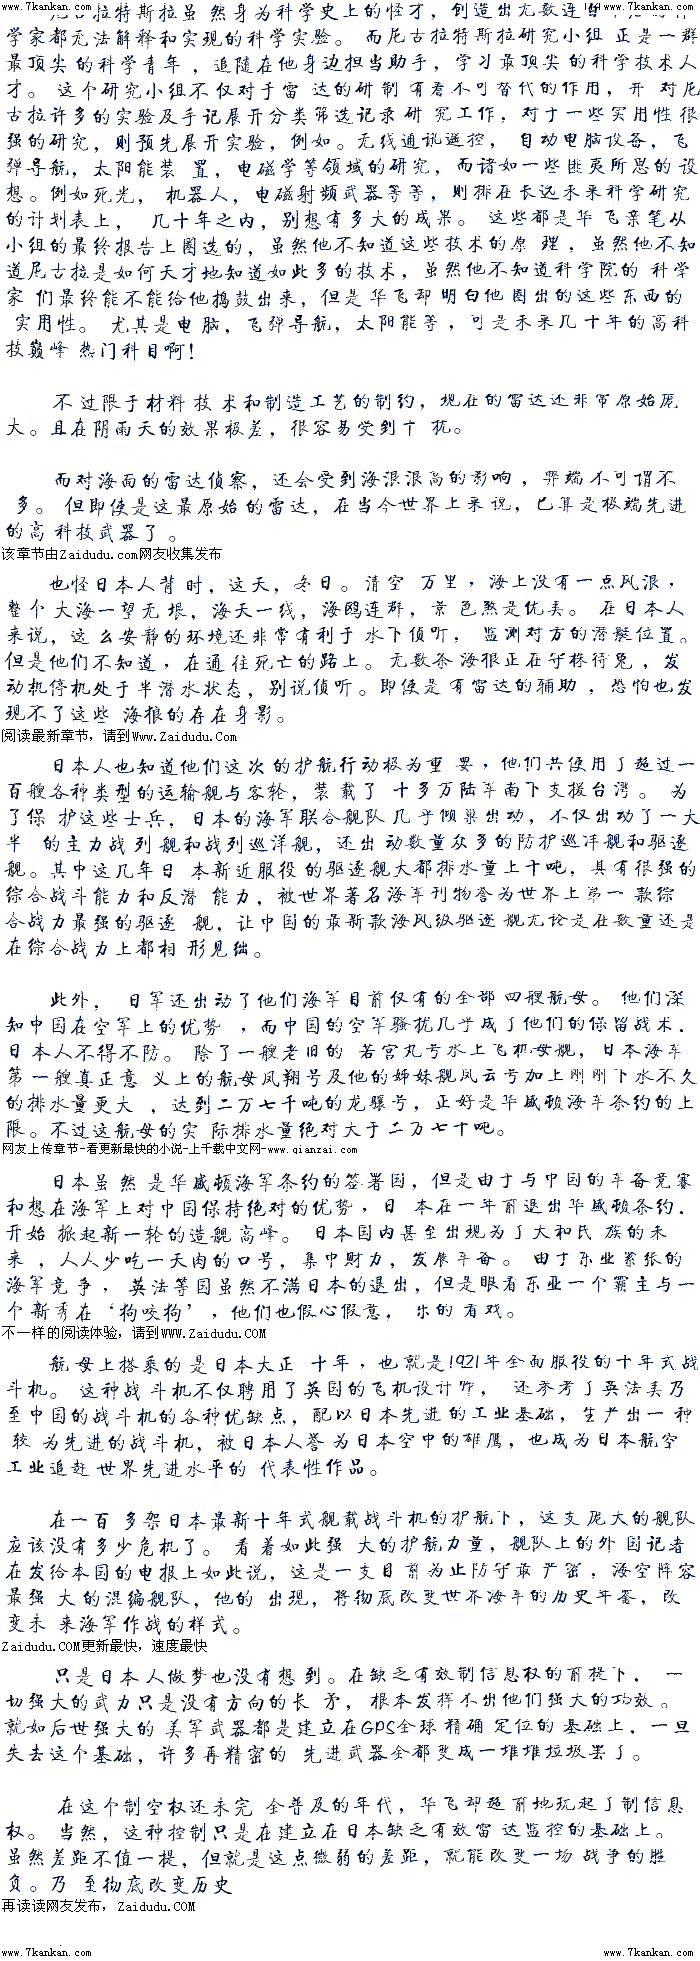 www.7kankan.com www.7kankan.com
尼古拉特斯拉虽 然身为科学史上的怪才，创造出无数连
学家都无法解释和实现的科学实验。 而尼古拉特斯拉研究小组 正是一群
最顶尖 的科学青年 ，追随在他身边担当助手，学习最顶尖 的科学技术人
才。 这个研究小组不仅对于雷 达的研制 有着不可替代的作用，开 对尼
古拉许多的实验及手记展开分类筛选记录 研 究工作，对于一些实用性很
强的研究，则预先展开实验，例如。无线通讯遥控， 自动电脑设备，飞
弹导航，太阳能装 置，电磁学等领域的研究，而诸如一些匪夷所思的设
想。例如死光， 机器人，电磁射频武器等等，则排在长远未来科学研究
的计划表上， 几十年之内，别想有多大的成果。 这些都是华 飞亲笔从
小组的最终报告上圈选的，虽然他不知道这些技术的原 理 ，虽然他不知
道尼古拉是如何天才地知道如此多的技术，虽然他不知道科学院的 科学
家 们最终能不能给他捣鼓出来，但是 华飞却 明白他 图出的这些东西的
实用性。 尤其是电 脑，飞弹导航，太阳能等 ，可是未来几十年的高科
技巅峰 热门科目啊！
不 过限于材料 技 术和制造工艺的制约，现在的雷达还非常原始庞
大。且在阴雨天的效果极差，很容易受到干 扰。
而对海面的雷达侦察，还会受到海浪浪高的影响 ，弊端 不可谓不
多。 但即使是这最原始 的雷达，在当今世界上来 说，已算是极端先进
的高 科技武器了 。
该章节由Zaidudu.com网友收集发布
也怪日本人背 时，这天，冬日。清空 万里，海上没有一点风浪 ，
整个 大海一望无 垠，海天一线，海鸥连群，景 色煞是优美。 在日本人
来说，这 么安静的环境还非常有利于 水下侦听， 监测对方的潜艇位置。
但是他们不知道 ，在通 往死亡的路上。 无数条 海狼正在守株待兔 ，发
动机停机处于半潜水状态，别说侦听。即使是 有雷达的辅助 ，恐怕也发
现不了这些 海狼的存在身影。
阅读最新章节，请到Www.Zaidudu.Com
日本人也知道他们这次的护航行动极为重 要，他们共使用了超过一
百艘各种类型的运输舰与客轮，装 载了 十多万陆军南下支援台湾。 为
了保 护这些士兵，日本的海军联合舰队几乎倾巢出动，不仅出动了一大
半 的主力战 列 舰和战列巡洋舰，还出 动数量众多的防护巡洋舰和驱逐
舰。其中这几年日 本新近服役 的驱逐舰大都排水量上千吨，具有很强的
综合战斗能力和反潜 能力，被世界著名海军刊物誉为世界上第一 款综
合战力最强的驱逐 舰，让中国的最新款海风级驱逐 舰无论是在数量还是
在综合战力上都相 形见绌。
此外， 日军还出动了他们海军目前仅有的全部 四艘航母。 他们深
知中国在空军上的优势 ，而中国的空军骚扰几乎成了他们的保留战术，
日 本人不得不防。 除了一艘老旧的 若宫丸号水上飞机母舰，日本海军
第 一艘真正意 义上的航母凤翔号及他的姊妹舰凤云号加上刚刚下水不久
的排水量更大 ，达到二万七千吨的龙骧号，正好是华盛顿海军条约的上
限。不过这航母的实 际排水量绝对大于二万七千吨。
网友上传章节-看更新最快的小说-上千载中文网-www.qianzai.com
日本虽 然 是华盛顿海军条约的签署国，但是由于与中国的军备竞赛
和想在海军上对中国保持绝对的优势，日 本在一年前退出华盛顿条约，
开始 掀起新一轮的造舰高峰。 日本国内甚至出现为了大和民 族的未
来 ，人人少吃一天肉的口号，集中财力，发展军备。 由于东亚紧张的
海军竞争 ， 英法等国虽然不满日本的退出，但是眼看东亚一个霸主与一
个新秀在‘狗咬狗’，他们也假心假意， 乐的 看戏。
不一样的阅读体验，请到WWW.Zaidudu.COM
航 母上搭乘的 是日本大正 十年，也就是1921年全面服役的十年式战
斗机。 这种战 斗机不仅聘用了英国的飞机设计师， 还参考了英法美乃
至中国的战斗机的各种优缺点，配以日本先进 的工业基础，生产出一 种
较 为先进的战斗机，被日本人誉 为日本空中的雄鹰，也成为日本航空
工业追赶 世界先进水平的 代表性作品。
在一百 多架日本最新十年式舰载战斗机的护航下，这支 庞大的舰队
应该没有多少危机了。 看 着如此强 大的护航力量，舰队上的外 国记者
在发给本国的电报上如此说，这是一支目 前为止防守最 严密 ，海空阵容
最强 大的混编舰队，他的 出现，将彻底改变世界海军的历史军鉴，改
变未 来海军作战的样式。
Zaidudu.COM更新最快，速度最快
只是日本 人做梦也没有想 到。在缺乏有效制信息权的前提下， 一
切强大的武力只是没有方向的长 矛， 根本发挥不出他们强大的功效 。
就如后世强大的 美军武器都是建立在GPS全球 精确 定位的 基础上，一旦
失去这个基础，许多再精密的 先进武器全都变成一堆堆垃圾罢了。
在这个制空权还未完 全普及的年代，华飞却超 前地玩起了制信息
权。 当然，这种控制只是在建立在日本缺乏有效雷 达监控的基础上。
虽然差距不值一提，但就是这点微弱的差距，就能改变一场 战争的胜
负。乃 至彻底改变历史
再读读网友发布，Zaidudu.COM
www.7kankan.com www.7kankan.com